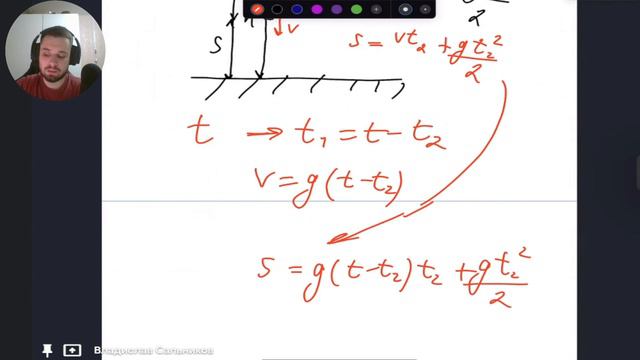 2
S
v
s = vt₂ + gt₂²/2
t → t₁ = t - t₂
v = g(t - t₂)
s = g(t - t₂)t₂ + gt₂²/2
Владислав Сальников